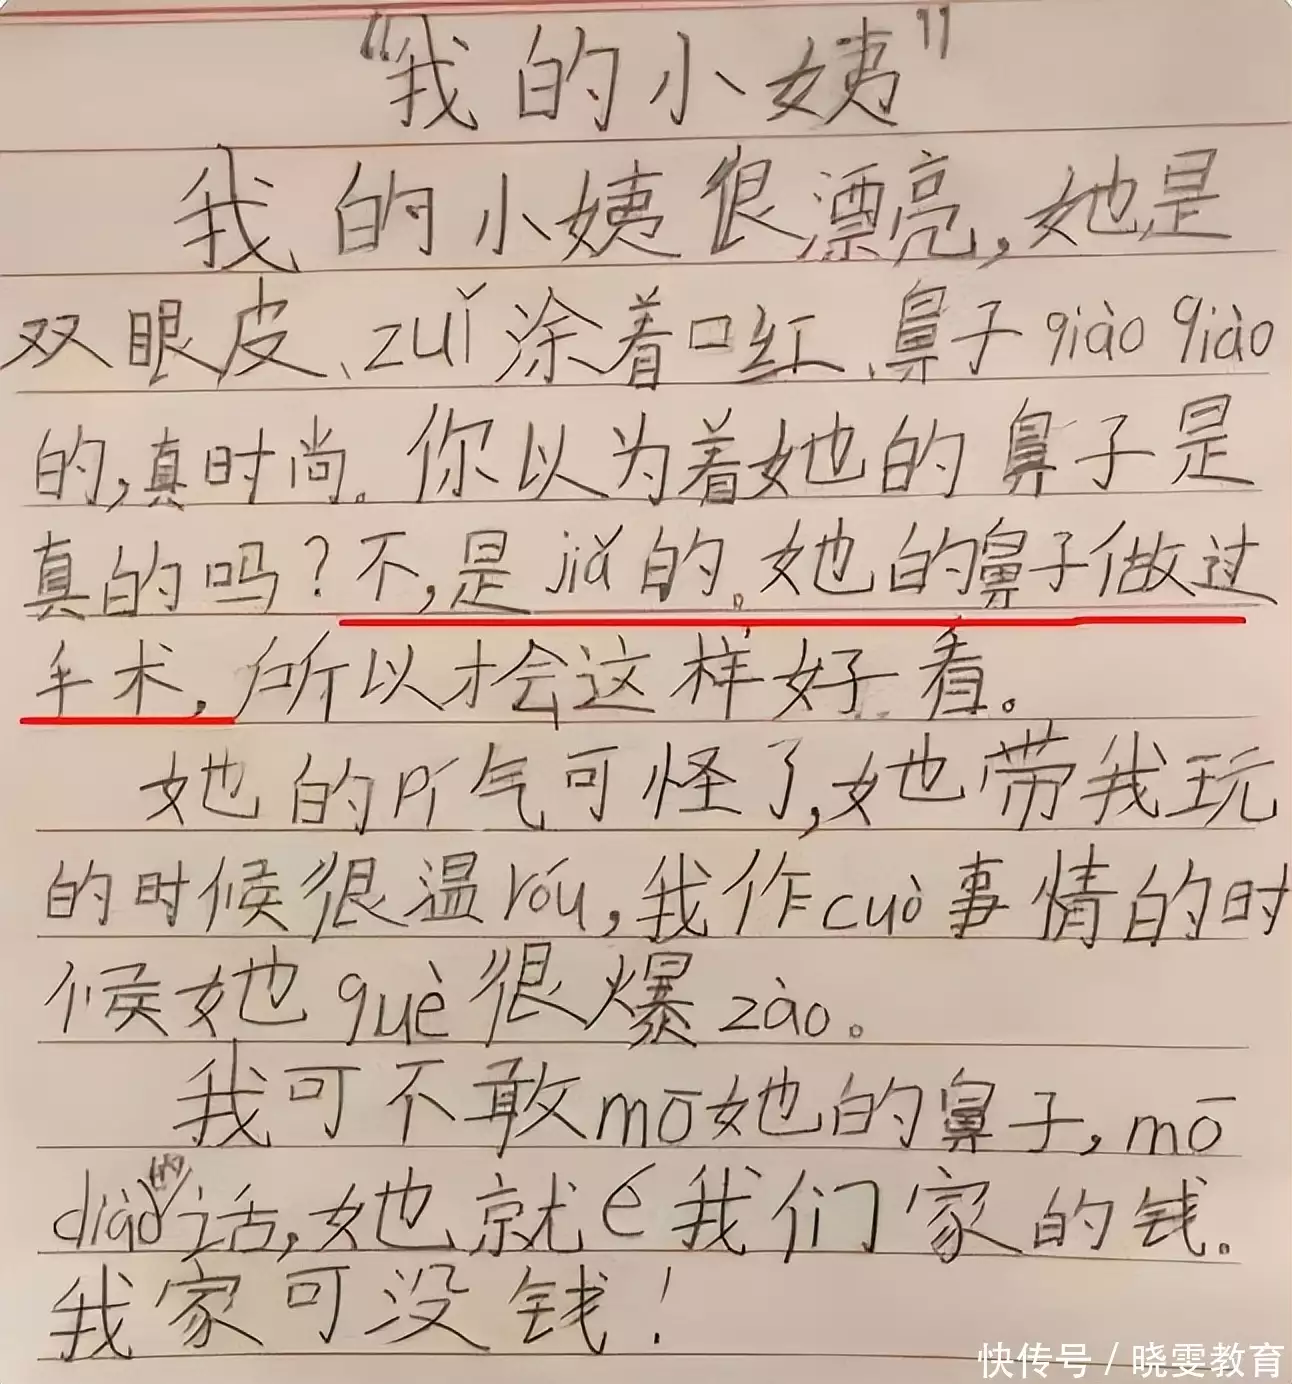 “我的小姨”
我的小姨很漂亮,她是
双眼皮、zuǐ涂着口红、鼻子qiào qiào
的,真时尚。你以为着她的鼻子是
真的吗?不,是jiǎ的。她的鼻子做过
手术,所以才会这样好看。
她的pí气可怪了,她带我玩
的时候很温róu,我作cuò事情的时
候她què很爆zào。
我可不敢mō她的鼻子,mō
diào的话,她就é我们家的钱。
我家可没钱!
快传号/晓雯教育